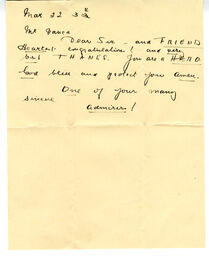 Mar 22 3
Mr Darca
Dear Sir - and FRIEND
Heartiest congratulations! and very
best THANKS. You are a HERO.
God bless and protect you Amen.
One of your many
sincere
admirers!